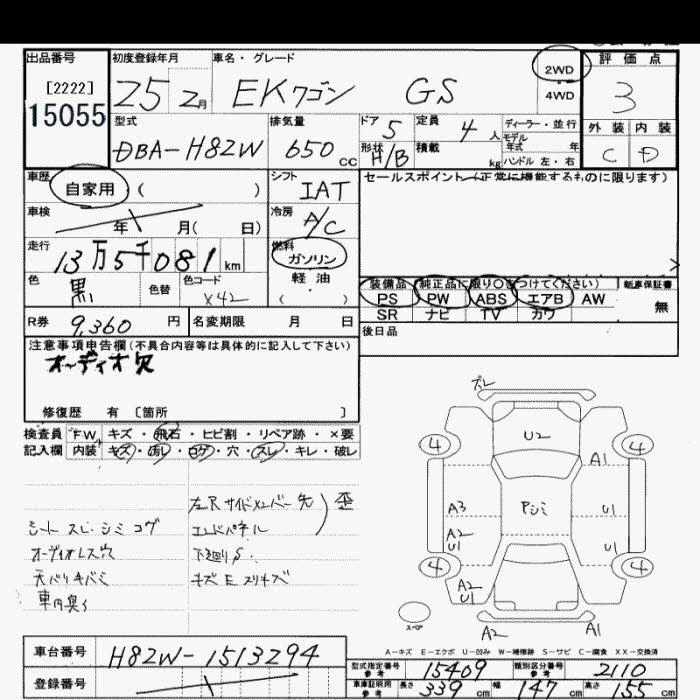 出品番号
[2222]
15055
初度登録年月
25 2月
車名・グレード
EKワゴン GS
2WD
4WD
評価点
3
外装 内装
C D
型式
DBA-H82W
排気量
650 CC
ドア 5
形状 H/B
定員 4 人
積載 kg
ディーラー・並行
モデル
年式 年
ハンドル 左・右
車歴
自家用 ( )
シフト
IAT
セールスポイント(正常に機能するものに限ります)
車検
年 月( 日)
冷房
A/C
走行
13万5千081 km
燃料
ガソリン
軽油
( )
色
黒
色替
色コード
X42
装備品 純正品に限り○をつけてください)
PS PW ABS エアB AW
SR ナビ TV カワ
新車保証書
無
R券 9,360 円
名変期限 月 日
後日品
注意事項申告欄(不具合内容等は具体的に記入して下さい)
オーディオ欠
修復歴 有 [箇所 ]
検査員 FW キズ・飛石・ヒビ割・リペア跡・×要
記入欄 内装 キズ・汚レ・コゲ・穴・スレ・キレ・破レ
左Rサイドメンバー先
エンドパネル
歪
シート スレ・シミ コゲ
オーディオレス穴
下廻りS.
天バリキバミ
キズ E スリキズ
車内臭イ
ズレ
4
U2
4
A1
A3
Pシミ
U1
A2
U1
U1
4
4
A2
U1
スペア
A2
A1
A-キズ E-エクボ U-凹み W-補修跡 S-サビ C-腐食 XX-交換済
車台番号
H82W-1513294
登録番号
型式指定番号
参考
15409
類別区分番号
参考
2110
車庫証明用
参考
長さ 339 cm 幅 147 cm 高さ 155 cm